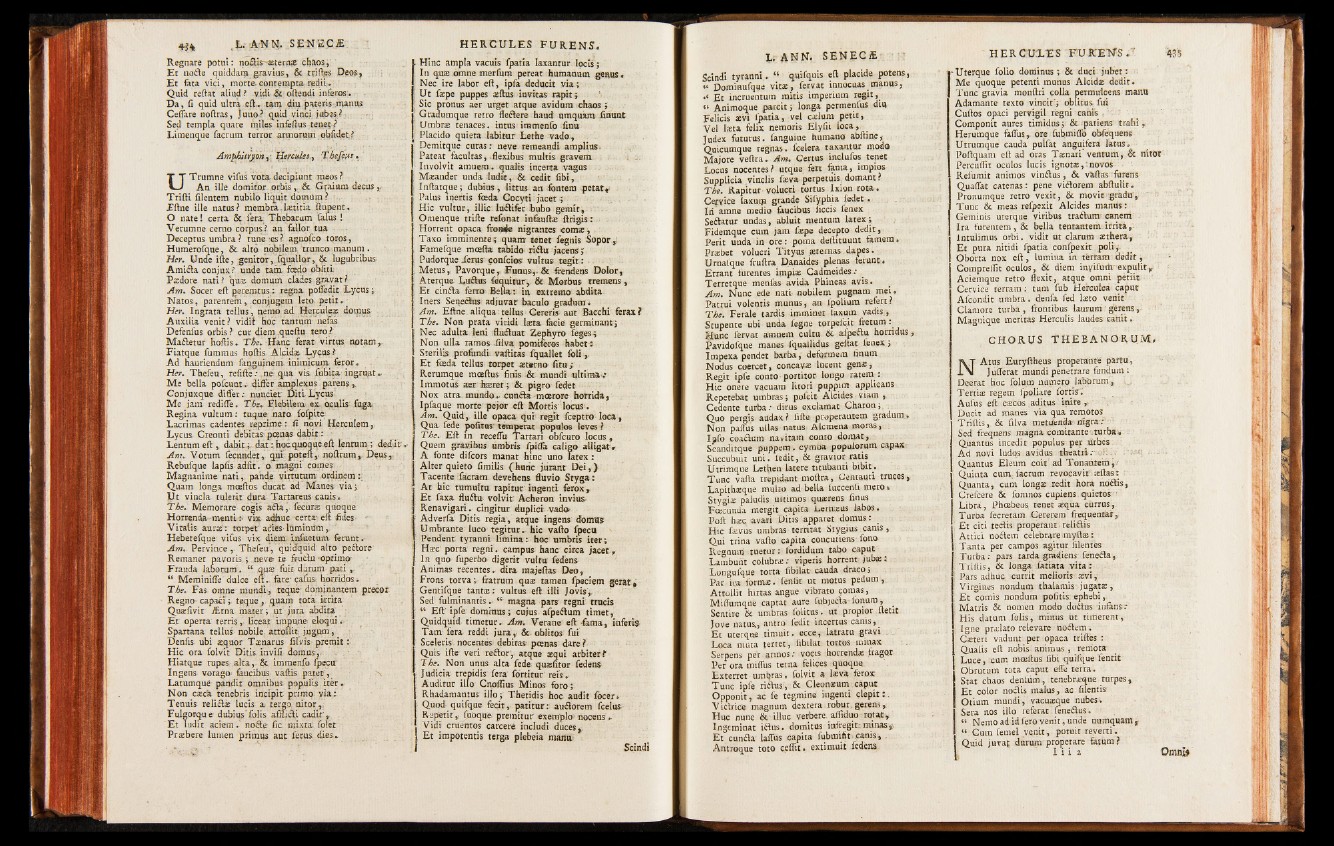 434 L. ANN. SENECÆ
Regnare potui: noctis æternæ chaos,
Et nocte quiddam gravius, & tristes Deos,
Et fata vici, morte contempta redii.
Quid restat aliud? vidi & ostendi inferos.
Da, si quid ultra est. tam diu pateris manus
Cessare nostras, Juno? quid vinci jubes?
Sed templa quare miles infestus tenet?
Limenque sacrum terror armorum obsidet?
Amphitryon, Hercules, Theseus.
UTrumne visus vota decipiunt meos?
An ille domitor orbis, & Graium decus,
Tristi silentem nubilo liquit domum?
Estne ille natus? membra lætitia stupent.
O nate! certa & sera Thebarum salus!
Verumne cerno corpus? an fallor tua
Deceptus umbra? tune es? agnosco toros,
Humerosque, & alto nobilem trunco manum.
Her. Unde iste, genitor, squallor, & lugubribus
Amicta conjux? unde tam fœdo obsiti
Pædore nati? quæ domum clades gravat?
Am. Socer est peremtus: regna possedit Lycus;
Natos, parentem, conjugem leto petit.
Her. Ingrata tellus, nemo ad Herculeæ domus
Auxilia venit? vidit hoc tantum nefas
Defensus orbis? cur diem questu tero?
Mactetur hostis. The. Hanc ferat virtus notam,
Fiatque summus hostis Alcidæ Lycus?
Ad hauriendum sanguinem inimicum feror.
Her. Theseu, resiste: ne qua vis subita ingruat.
Me bella poscunt. differ amplexus parens,
Conjuxque differ: nunciet Diti Lycus
Me jam redisse. The. Flebilem ex oculis fuga
Regina vultum: tuque nato sospite
Lacrimas cadentes reprime: si novi Herculem,
Lycus Creonti debitas pœnas dabit:
Lentum est, dabit; dat: hoc quoque est lentum; dedit.
Am. Votum secundet, qui potest, nostrum, Deus,
Rebusque lapsis adsit. o magni comes
Magnanime nati, pande virtutum ordinem:
Quam longa mœstos ducat ad Manes via;
Ut vincla tulerit dura Tartareus canis.
The. Memorare cogis acta, securæ quoque
Horrenda menti: vix adhuc certa est fides
Vitalis auræ: torpet acies luminum,
Hebetesque visus vix diem insuetum ferunt.
Am. Pervince, Theseu, quidquid alto pectore
Remanet pavoris; neve te fructu optimo
Frauda laborum. “ quæ fuit durum pati,
“ Meminisse dulce est. fare casus horridos.
The. Fas omne mundi, teque dominantem precor
Regno capaci; teque, quam tota irrita
Quæsivit Ætna mater; ut jura abdita
Et operta terris, liceat impune eloqui.
Spartana tellus nobile attollit jugum,
Densis ubi æquor Tænarus silvis premit:
Hic ora solvit Ditis invisi domus,
Hiatque rupes alta, & immenso specu
Ingens vorago faucibus vastis patet,
Latumque pandit omnibus populis iter.
Non cæca tenebris incipit primo via:
Tenuis relictæ lucis a tergo nitor,
Fulgorque dubius solis afflicti cadit,
Et ludit aciem. nocte sic mixta solet
Præbere lumen primus aut serus dies.
HERCULES FURENS.
Hinc ampla vacuis spatia laxantur locis;
In quæ omne mersum pereat humanum genus.
Nec ire labor est, ipsa deducit via;
Ut sæpe puppes æstus invitas rapit;
Sic pronus aer urget atque avidum chaos;
Gradumque retro flectere haud umquam sinunt
Umbræ tenaces. intus immenso sinu
Placido quieta labitur Lethe vado,
Demitque curas: neve remeandi amplius
Pateat facultas, flexibus multis gravem
Involvit amnem. qualis incerta vagus
Mæander unda ludit, & cedit sibi,
Instatque; dubius, littus an fontem petat,
Palus inertis fœda Cocyti jacet;
Hic vultur, illic luctifer bubo gemit,
Omenque triste resonat infaustæ strigis:
Horrent opaca fronde nigrantes comæ,
Taxo imminente; quam tenet segnis Sopor,
Famesque mœsta tabido rictu jacens;
Pudorque serus conscios vultus tegit:
Metus, Pavorque, Funus, & frendens Dolor,
Aterque Luctus sequitur, & Morbus tremens,
Et cincta ferro Bella: in extremo abdita
Iners Senectus adjuvat baculo gradum.
Am. Estne aliqua tellus Cereris aut Bacchi ferax?
The. Non prata viridi læta facie germinant;
Nec adulta leni fluctuat Zephyro seges;
Non ulla ramos silva pomiferos habet:
Sterilis profundi vastitas squallet soli,
Et fœda tellus torpet æterno situ;
Rerumque mœstus finis & mundi ultima:
Immotus aer hæret; & pigro sedet
Nox atra mundo. cuncta mœrore horrida,
Ipsaque morte pejor est Mortis locus.
Am. Quid, ille opaca qui regit sceptro loca,
Qua sede positus temperat populos leves?
The. Est in recessu Tartari obscuro locus,
Quem gravibus umbris spissa caligo alligat.
A fonte discors manat hinc uno latex:
Alter quieto similis (hunc jurant Dei,)
Tacente sacram devehens fluvio Styga:
At hic tumultu rapitur ingenti ferox,
Et saxa fluctu volvit Acheron invius
Renavigari. cingitur duplici vado
Adversa Ditis regia, atque ingens domus
Umbrante luco tegitur. hic vasto specu
Pendent tyranni limina: hoc umbris iter;
Hæc porta regni. campus hanc circa jacet,
In quo superbo digerit vultu sedens
Animas recentes. dira majestas Deo,
Frons torva; fratrum quæ tamen speciem gerat,
Gentisque tantæ: vultus est illi Jovis,
Sed fulminantis. “ magna pars regni trucis
“ Est ipse dominus; cujus aspectum timet,
Quidquid timetur. Am. Verane est fama, inferis
Tam sera reddi jura, & oblitos sui
Sceleris nocentes debitas pœnas dare?
Quis iste veri rector, atque æqui arbiter?
The. Non unus alta sede quæsitor sedens
Judicia trepidis sera sortitur reis.
Auditur illo Cnossius Minos foro;
Rhadamantus illo; Thetidis hoc audit socer.
Quod quisque fecit, patitur: auctorem scelus
Repetit, suoque premitur exemplo nocens.
Vidi cruentos carcere includi duces,
Et impotentis terga plebeia manu
Scindi
L. ANN. SENECÆ
Scindi tyranni. “ quisquis est placide potens,
“ Dominusque vitæ, servat innocuas manus,
“ Et incruentum mitis imperium regit,
“ Animoque parcit; longa permensus diu
Felicis ævi spatia, vel cælum petit,
Vel læta felix nemoris Elysii loca,
Judex futurus. sanguine humano abstine,
Quicumque regnas. scelera taxantur modo
Majore vestra. Am. Certus inclusos tenet
Locus nocentes? utque fert fama, impios
Supplicia vinclis sæva perpetuis domant?
The. Rapitur volucri tortus Ixion rota.
Cervice saxum grande Sisyphia sedet.
In amne medio faucibus siccis senex
Sectatur undas, abluit mentum latex;
Fidemque cum jam sæpe decepto dedit,
Perit unda in ore: poma destituunt famem.
Præbet volucri Tityus æternas dapes.
Urnasque frustra Danaides plenas gerunt.
Errant furentes impiæ Cadmeides:
Terretque mensas avida Phineas avis.
Am. Nunc ede nati nobilem pugnam mei.
Patrui volentis munus, an spolium refert?
The. Ferale tardis imminet saxum vadis,
Stupente ubi unda segne torpescit fretum:
Hunc servat amnem cultu & aspectu horridus,
Pavidosque manes squallidus gestat senex;
Impexa pendet barba, deformem sinum
Nodus coercet, concavæ lucent genæ,
Regit ipse conto portitor longo ratem:
Hic onere vacuam litori puppim applicans
Repetebat umbras; poscit Alcides viam,
Cedente turba: dirus exclamat Charon;
Quo pergis audax? siste properantem gradum.
Non passus ullas natus Alcmena moras,
Ipso coactum navitam conto domat,
Scanditque puppem. cymba populorum capax
Succubuit uni. sedit, & gravior ratis
Utrimque Lethen latere titubanti bibit.
Tunc vasta trepidant mostra, Centauri truces,
Lapithæque multo ad bella succensi mero.
Stygiæ paludis ultimos quærens sinus
Fœcunda mergit capita Lernæus labos.
Post hæc avari Ditis apparet domus:
Hic sævus umbras territat Stygius canis,
Qui trina vasto capita concutiens sono
Regnum tuetur: sordidum tabo caput
Lambunt colubræ: viperis horrent jubæ:
Longusque torta sibilat cauda draco;
Par ira formæ. sensit ut motus pedum,
Attollit hirtas angue vibrato comas,
Missumque captat aure subjecta sonum,
Sentire & umbras solitus. ut propior stetit
Jove natus, antro sedit incertus canis,
Et uterque timuit. ecce, latratu gravi
Loca muta terret, sibilat tortos minax
Serpens per armos: vocis horrendæ fragor
Per ora missus terna felices quoque
Exterret umbras. solvit a læva ferox
Tunc ipse rictus, & Cleonæum caput
Opponit, ac se tegmine ingenti clepit:
Victrice magnum dextera robur gerens,
Huc nunc & illuc verbere assiduo rotat,
Ingeminat ictus. domitus infregit minas,
Et cuncta lassus capita submisit canis,
Antroque toto cessit. extimuit sedens
HERCULES FURENS. 435
Uterque solio dominus; & duci jubet:
Me quoque petenti munus Alcidæ dedit.
Tunc gravia monstri colla permulcens manu
Adamante texto vincit; oblitus sui
Custos opaci pervigil regni canis
Componit aures timidus; & patiens trahi,
Herumque fassus, ore submisso obsequens
Utrumque cauda pulsat anguifera latus.
Postquam est ad oras Tænari ventum, & nitor
Percussit oculos lucis ignotæ, novos
Resumit animos vinctus, & vastas furens
Quassat catenas: pene victorem abstulit.
Pronumque retro vexit, & movit gradu,
Tunc & meas respexit Alcides manus:
Geminis uterque viribus tractum canem
Ira furentem, & bella tentantem irrita,
Intulimus orbi. vidit ut clarum æthera,
Et pura nitidi spatia conspexit poli,
Oborta nox est, lumina in terram dedit,
Compressit oculos, & diem invisum expulit,
Aciemque retro flexit, atque omni petiit
Cervice terram: tum sub Herculea caput
Abscondit umbra. densa sed læto venit
Clamore turba, frontibus laurum gerens,
Magnique meritas Herculis laudes canit.
CHORUS THEBANORUM.
NAtus Eurystheus properante partu,
Jusserat mundi penetrare fundum:
Deerat hoc solum numero laborum,
Tertiæ regem spoliare sortis.
Ausus est cæcos aditus inire,
Ducit ad manes via qua remotos
Tristis, & silva metuenda nigra:
Sed frequens magna comitante turba.
Quantus incedit populus per urbes
Ad novi ludos avidus theatri:
Quantus Eleum coit ad Tonantem,
Quinta cum sacrum revocavit æstas:
Quanta, cum longæ redit hora noctis,
Crescere & somnos cupiens quietos
Libra, Phœbeos tenet æqua currus,
Turba secretam Cererem frequentat,
Et citi tectis properant relictis
Attici noctem celebrare mystæ:
Tanta per campos agitur silentes
Turba: pars tarda gradiens senecta,
Tristis, & longa satiata vita:
Pars adhuc currit melioris ævi,
Virgines nondum thalamis jugatæ,
Et comis nondum positis ephebi,
Matris & nomen modo doctus infans:
His datum solis, minus ut timerent,
Igne prælato relevare noctem.
Cæteri vadunt per opaca tristes:
Qualis est nobis animus, remota
Luce, cum mœstus sibi quisque sentit
Obrutum tota caput esse terra.
Stat chaos densum, tenebræque turpes,
Et color noctis malus, ac silentis
Otium mundi, vacuæque nubes.
Sera nos illo referat senectus.
“ Nemo ad id sero venit, unde numquam,
“ Cum semel venit, potuit reverti.
Quid juvat durum properare fatum?
I i i 2 Omnis